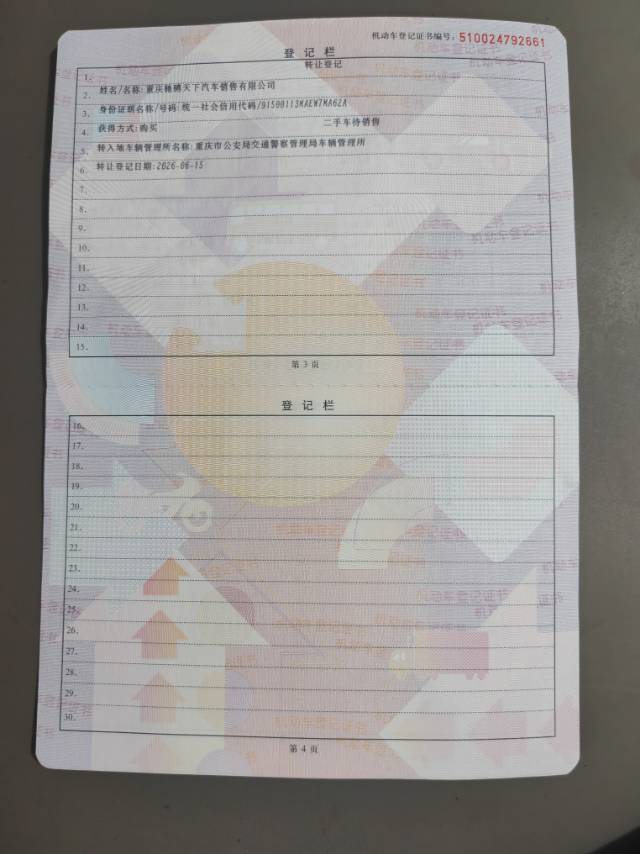 机动车登记证书编号：510024792661
登记栏
转让登记
1.
2. 姓名/名称:重庆驰骋天下汽车销售有限公司
3. 身份证明名称/号码:统一社会信用代码/91500113MAEW7MA62A
4. 获得方式:购买 二手车待销售
5. 转入地车辆管理所名称:重庆市公安局交通警察管理局车辆管理所
6. 转让登记日期:2026-06-15
7.
8.
9.
10.
11.
12.
13.
14.
15.
第 3 页
登记栏
16.
17.
18.
19.
20.
21.
22.
23.
24.
25.
26.
27.
28.
29.
30.
第 4 页